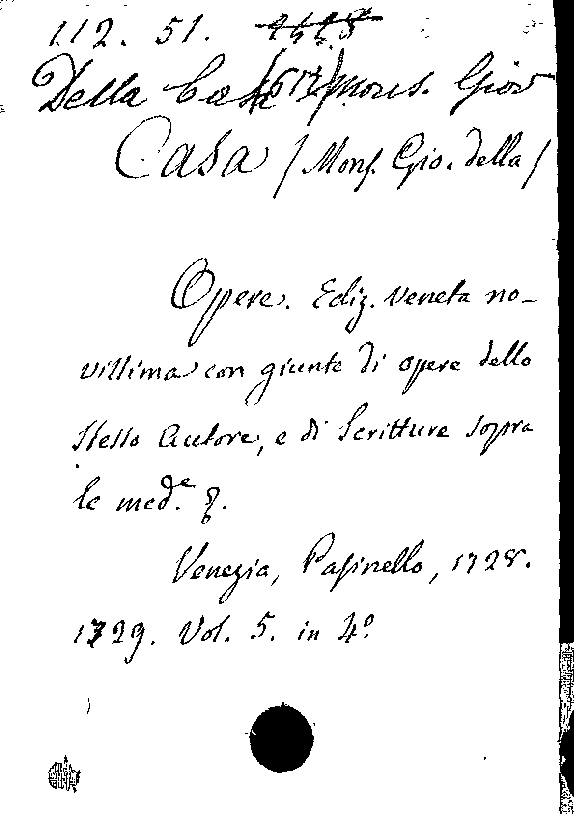 112. 51.
Della Casa Mons. Giov
Casa / Mons. Gio. della /
Opere. Ediz. Veneta no-
villima con giunte di opere dello
Stesso Autore, e di Scritture sopra
le med.e &.
Venezia, Pasinello, 1728.
1729. Vol. 5. in 4º